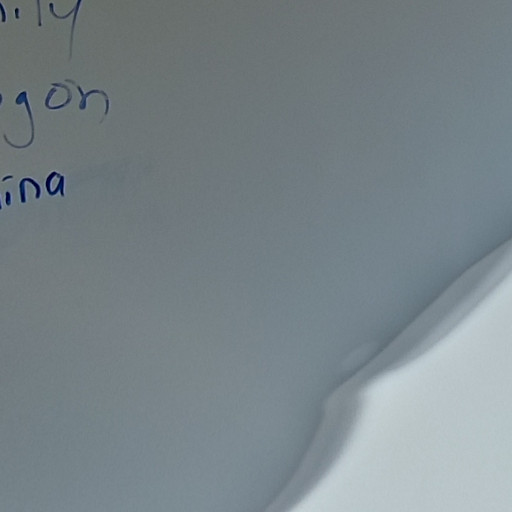 ily
gon
ina